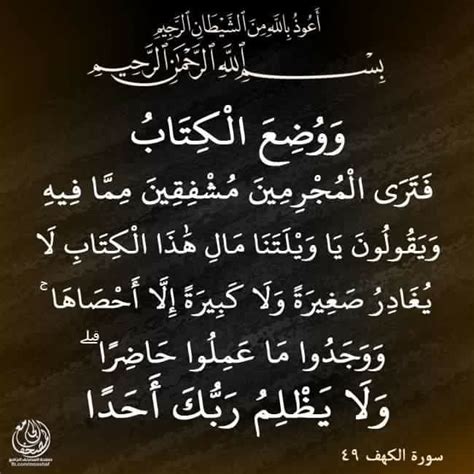 أَعُوذُ بِاللَّهِ مِنَ الشَّيْطَانِ الرَّجِيمِ
بِسْمِ اللَّهِ الرَّحْمَٰنِ الرَّحِيمِ
وَوُضِعَ الْكِتَابُ
فَتَرَى الْمُجْرِمِينَ مُشْفِقِينَ مِمَّا فِيهِ
وَيَقُولُونَ يَا وَيْلَتَنَا مَالِ هَٰذَا الْكِتَابِ لَا
يُغَادِرُ صَغِيرَةً وَلَا كَبِيرَةً إِلَّا أَحْصَاهَا ۚ
وَوَجَدُوا مَا عَمِلُوا حَاضِرًا ۗ
وَلَا يَظْلِمُ رَبُّكَ أَحَدًا
سورة الكهف ٤٩